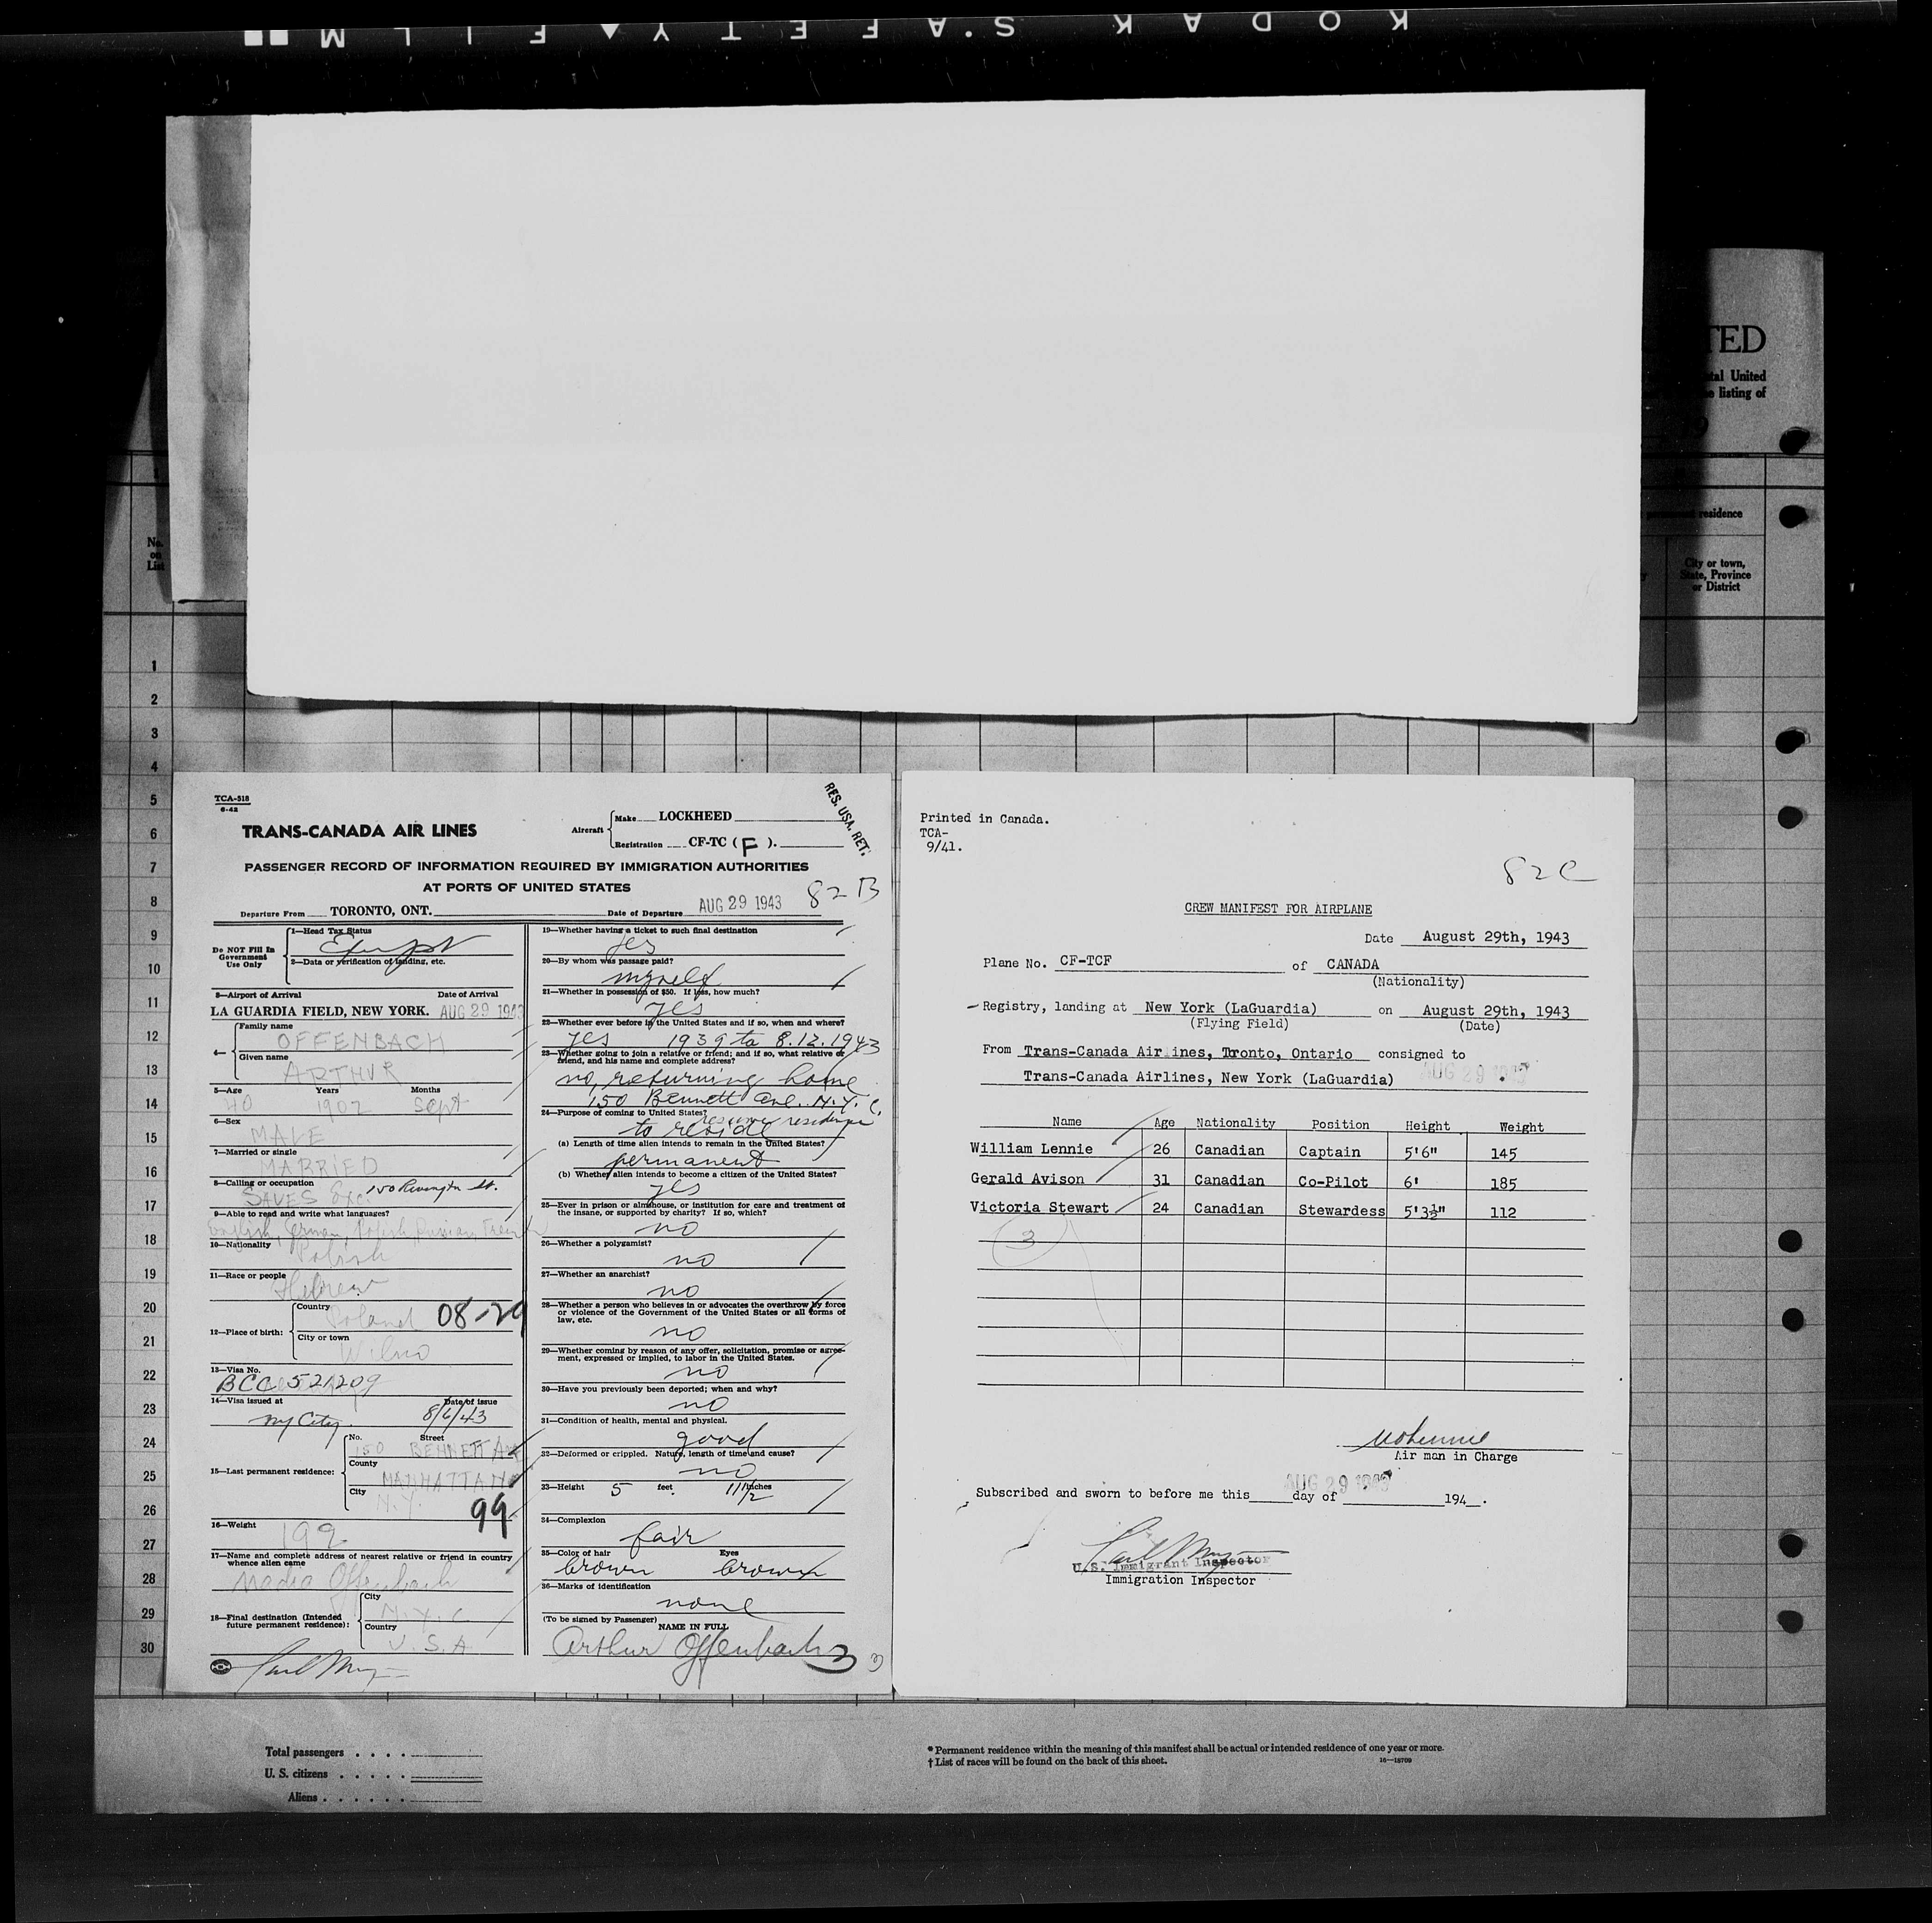 KODAK SAFETY FILM
TED
tal United
e listing of
residence
No.
on
List
City or town,
State, Province
or District
1
2
3
4
5
6
7
8
9
10
11
12
13
14
15
16
17
18
19
20
21
22
23
24
25
26
27
28
29
30
TCA-518
6-42
TRANS-CANADA AIR LINES
Aircraft
Make LOCKHEED
Registration CF-TC (F).
RES. USA. RET.
PASSENGER RECORD OF INFORMATION REQUIRED BY IMMIGRATION AUTHORITIES
AT PORTS OF UNITED STATES
82 B
Departure From TORONTO, ONT. Date of Departure AUG 29 1943
Do NOT Fill In
Government
Use Only
1—Head Tax Status
2—Data or verification of landing, etc.
3—Airport of Arrival Date of Arrival
LA GUARDIA FIELD, NEW YORK. AUG 29 1943
4— Family name
OFFENBACH
Given name
ARTHUR
5—Age Years Months
40 1902 Sept
6—Sex
MALE
7—Married or single
MARRIED
8—Calling or occupation
SALES Exc. 150 Rivington St.
9—Able to read and write what languages?
English, German, Polish, Russian, French
10—Nationality
Polish
11—Race or people
Hebrew
12—Place of birth:
Country
Poland 08-29
City or town
Wilno
13—Visa No.
BCC 521209
14—Visa issued at Date of issue
NY City. 8/6/43
15—Last permanent residence:
No. Street
150 BENNETT Ave
County
MANHATTAN
City
N.Y.
99
16—Weight
199
17—Name and complete address of nearest relative or friend in country
whence alien came
Nadia Offenbach
18—Final destination (Intended
future permanent residence):
City
N.Y.C
Country
U.S.A
19—Whether having a ticket to such final destination
yes
20—By whom was passage paid?
myself
21—Whether in possession of $50. If less, how much?
yes
22—Whether ever before in the United States and if so, when and where?
yes 1939 to 8.12.1943
23—Whether going to join a relative or friend; and if so, what relative or
friend, and his name and complete address?
no, returning home
150 Bennett Ave. N.Y.C.
24—Purpose of coming to United States?
resume residence
to reside
(a) Length of time alien intends to remain in the United States?
permanent
(b) Whether alien intends to become a citizen of the United States?
yes
25—Ever in prison or almshouse, or institution for care and treatment of
the insane, or supported by charity? If so, which?
no
26—Whether a polygamist?
no
27—Whether an anarchist?
no
28—Whether a person who believes in or advocates the overthrow by force
or violence of the Government of the United States or all forms of
law, etc.
no
29—Whether coming by reason of any offer, solicitation, promise or agree-
ment, expressed or implied, to labor in the United States.
no
30—Have you previously been deported; when and why?
no
31—Condition of health, mental and physical.
good
32—Deformed or crippled. Nature, length of time and cause?
no
33—Height 5 feet 11 1/2 inches
34—Complexion
fair
35—Color of hair Eyes
brown brown
36—Marks of identification
none
(To be signed by Passenger)
NAME IN FULL
Arthur Offenbach
3
Printed in Canada.
TCA-
9/41.
82C
CREW MANIFEST FOR AIRPLANE
Date August 29th, 1943
Plane No. CF-TCF of CANADA
(Nationality)
Registry, landing at New York (LaGuardia) on August 29th, 1943
(Flying Field) (Date)
From Trans-Canada Air ines, Tronto, Ontario consigned to
Trans-Canada Airlines, New York (LaGuardia) AUG 29 1943
Name Age Nationality Position Height Weight
William Lennie 26 Canadian Captain 5'6" 145
Gerald Avison 31 Canadian Co-Pilot 6' 185
Victoria Stewart 24 Canadian Stewardess 5'3½" 112
3
Air man in Charge
AUG 29 1943
Subscribed and sworn to before me this day of 194 .
U.S. Immigrant Inspector
Immigration Inspector
Total passengers . . . .
U. S. citizens . . . . .
Aliens . . . . . .
* Permanent residence within the meaning of this manifest shall be actual or intended residence of one year or more.
† List of races will be found on the back of this sheet.
16—18709